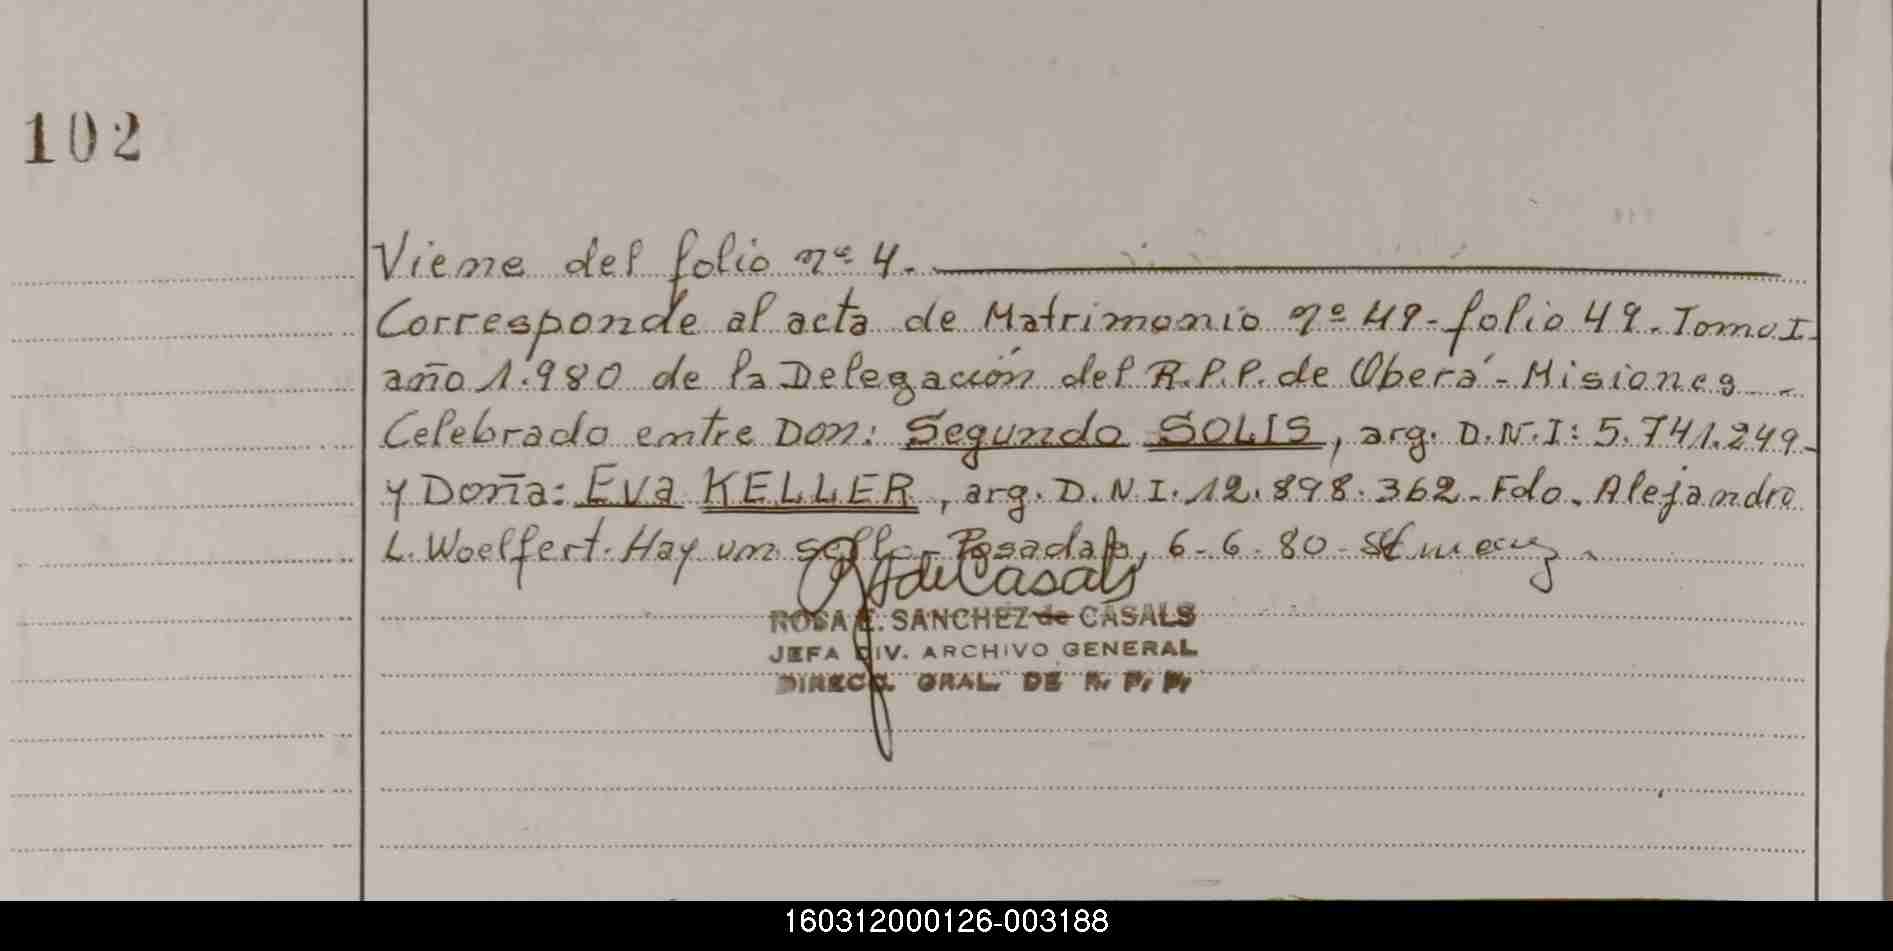 102
Viene del folio nº 4.
Corresponde al acta de Matrimonio nº 49 - folio 49. Tomo I -
año 1.980 de la Delegación del R.P.P. de Oberá - Misiones -
Celebrado entre Don: Segundo SOLIS, arg. D.N.I: 5.741.249 -
y Doña: Eva KELLER, arg. D.N.I. 12.898.362 - Fdo. Alejandro
L. Woelfert. Hay un sello - Posadas, 6 - 6 - 80 -
de Casals
ROSA E. SANCHEZ de CASALS
JEFA DIV. ARCHIVO GENERAL
DIRECC. GRAL. DE R. P. P.
160312000126-003188